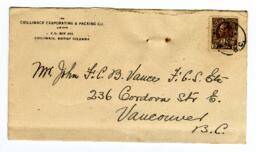 THE
CHILLIWACK EVAPORATING & PACKING CO.
LIMITED
P.O. BOX 243
CHILLIWACK, BRITISH COLUMBIA
Mr John F.C.B. Vance F.C.S. Etc
236 Cordova Str E.
Vancouver
B.C